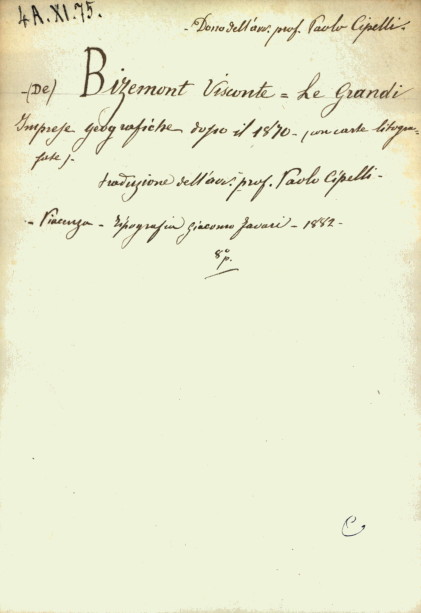 4A.XI.75.
- Dono dell'avv. prof. Paolo Cipelli -
- (De) Bizemont Visconte = Le Grandi
Imprese geografiche dopo il 1870 - (con carte litogra-
fate) -
traduzione dell'avv. prof. Paolo Cipelli -
- Piacenza - Tipografia Giacomo Favari - 1882 -
8° p.
C